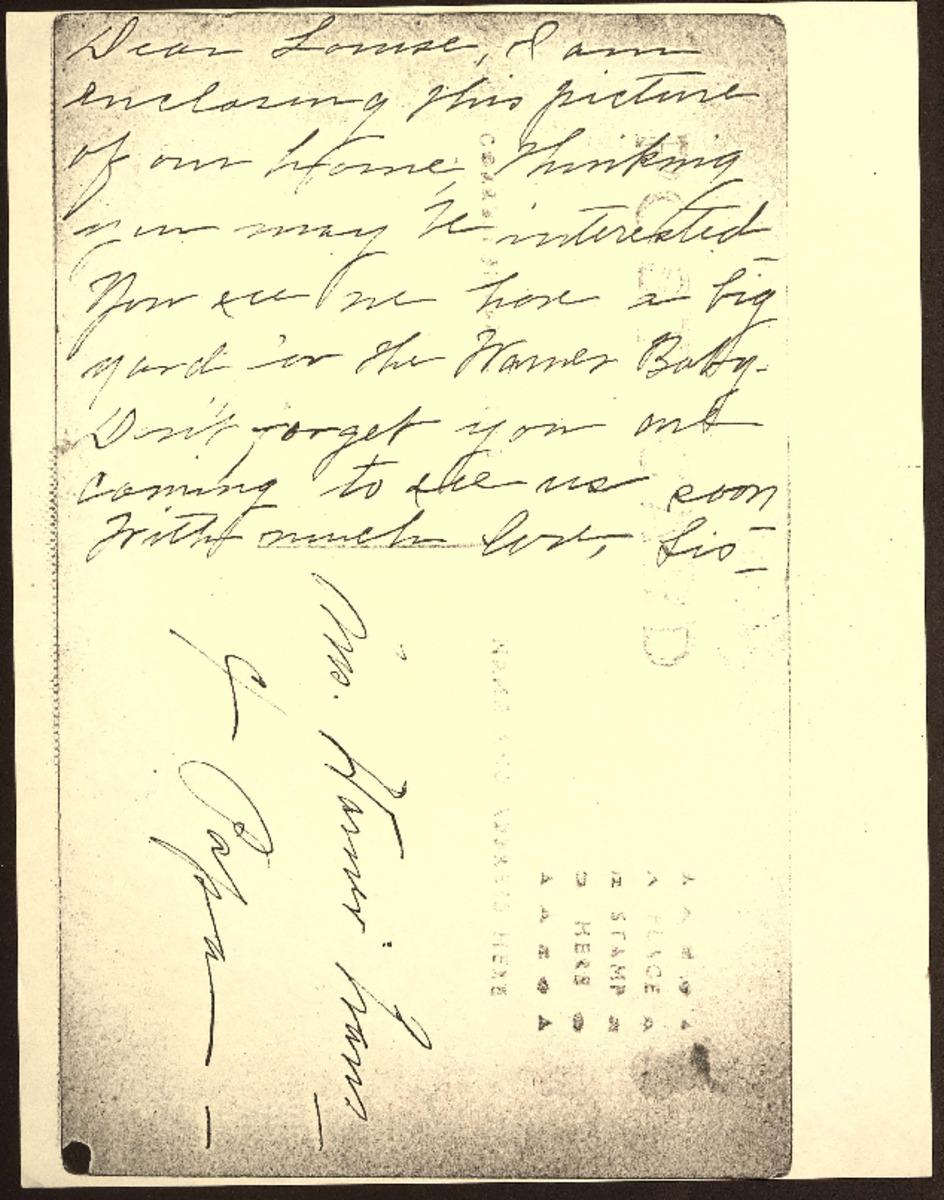 Dear Louise, I am
enclosing this picture
of our home, thinking
you may be interested
You see we have a big
yard for the Warner Baby.
Don't forget you are
coming to see us soon
With much love, Sis
Mrs.
POST CARD
NAME AND ADDRESS HERE
PLACE
STAMP
HERE